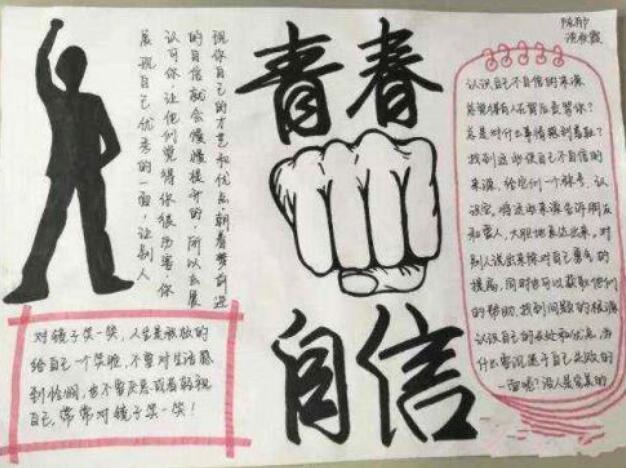 青春
自信
展现自己优秀的一面,让别人
认可你,让他们觉得你很厉害你
的自信就会慢慢提升的,所以去展
现你自己的才艺和优点,朝着梦前进
对镜子笑一笑,人生是
给自己一个笑脸,不要对生活感
到怯懦,也不要厌恶或者轻视
自己,常常对镜子笑一笑!
认识自己不自信的来源
总觉得有人在背后责骂你?
总是对什么事情感到羞耻?
找到这些使自己不自信的
来源,给它们一个称号,认
识它。将这些来源告诉朋友
和家人,大胆地表达出来。对
别人说出来除对自己勇气的
提高,同时也可以获取他们
的帮助。找到问题的根源
认识自己的长处和优点,为
什么要沉迷于自己失败的
一面呢?没人是完美的